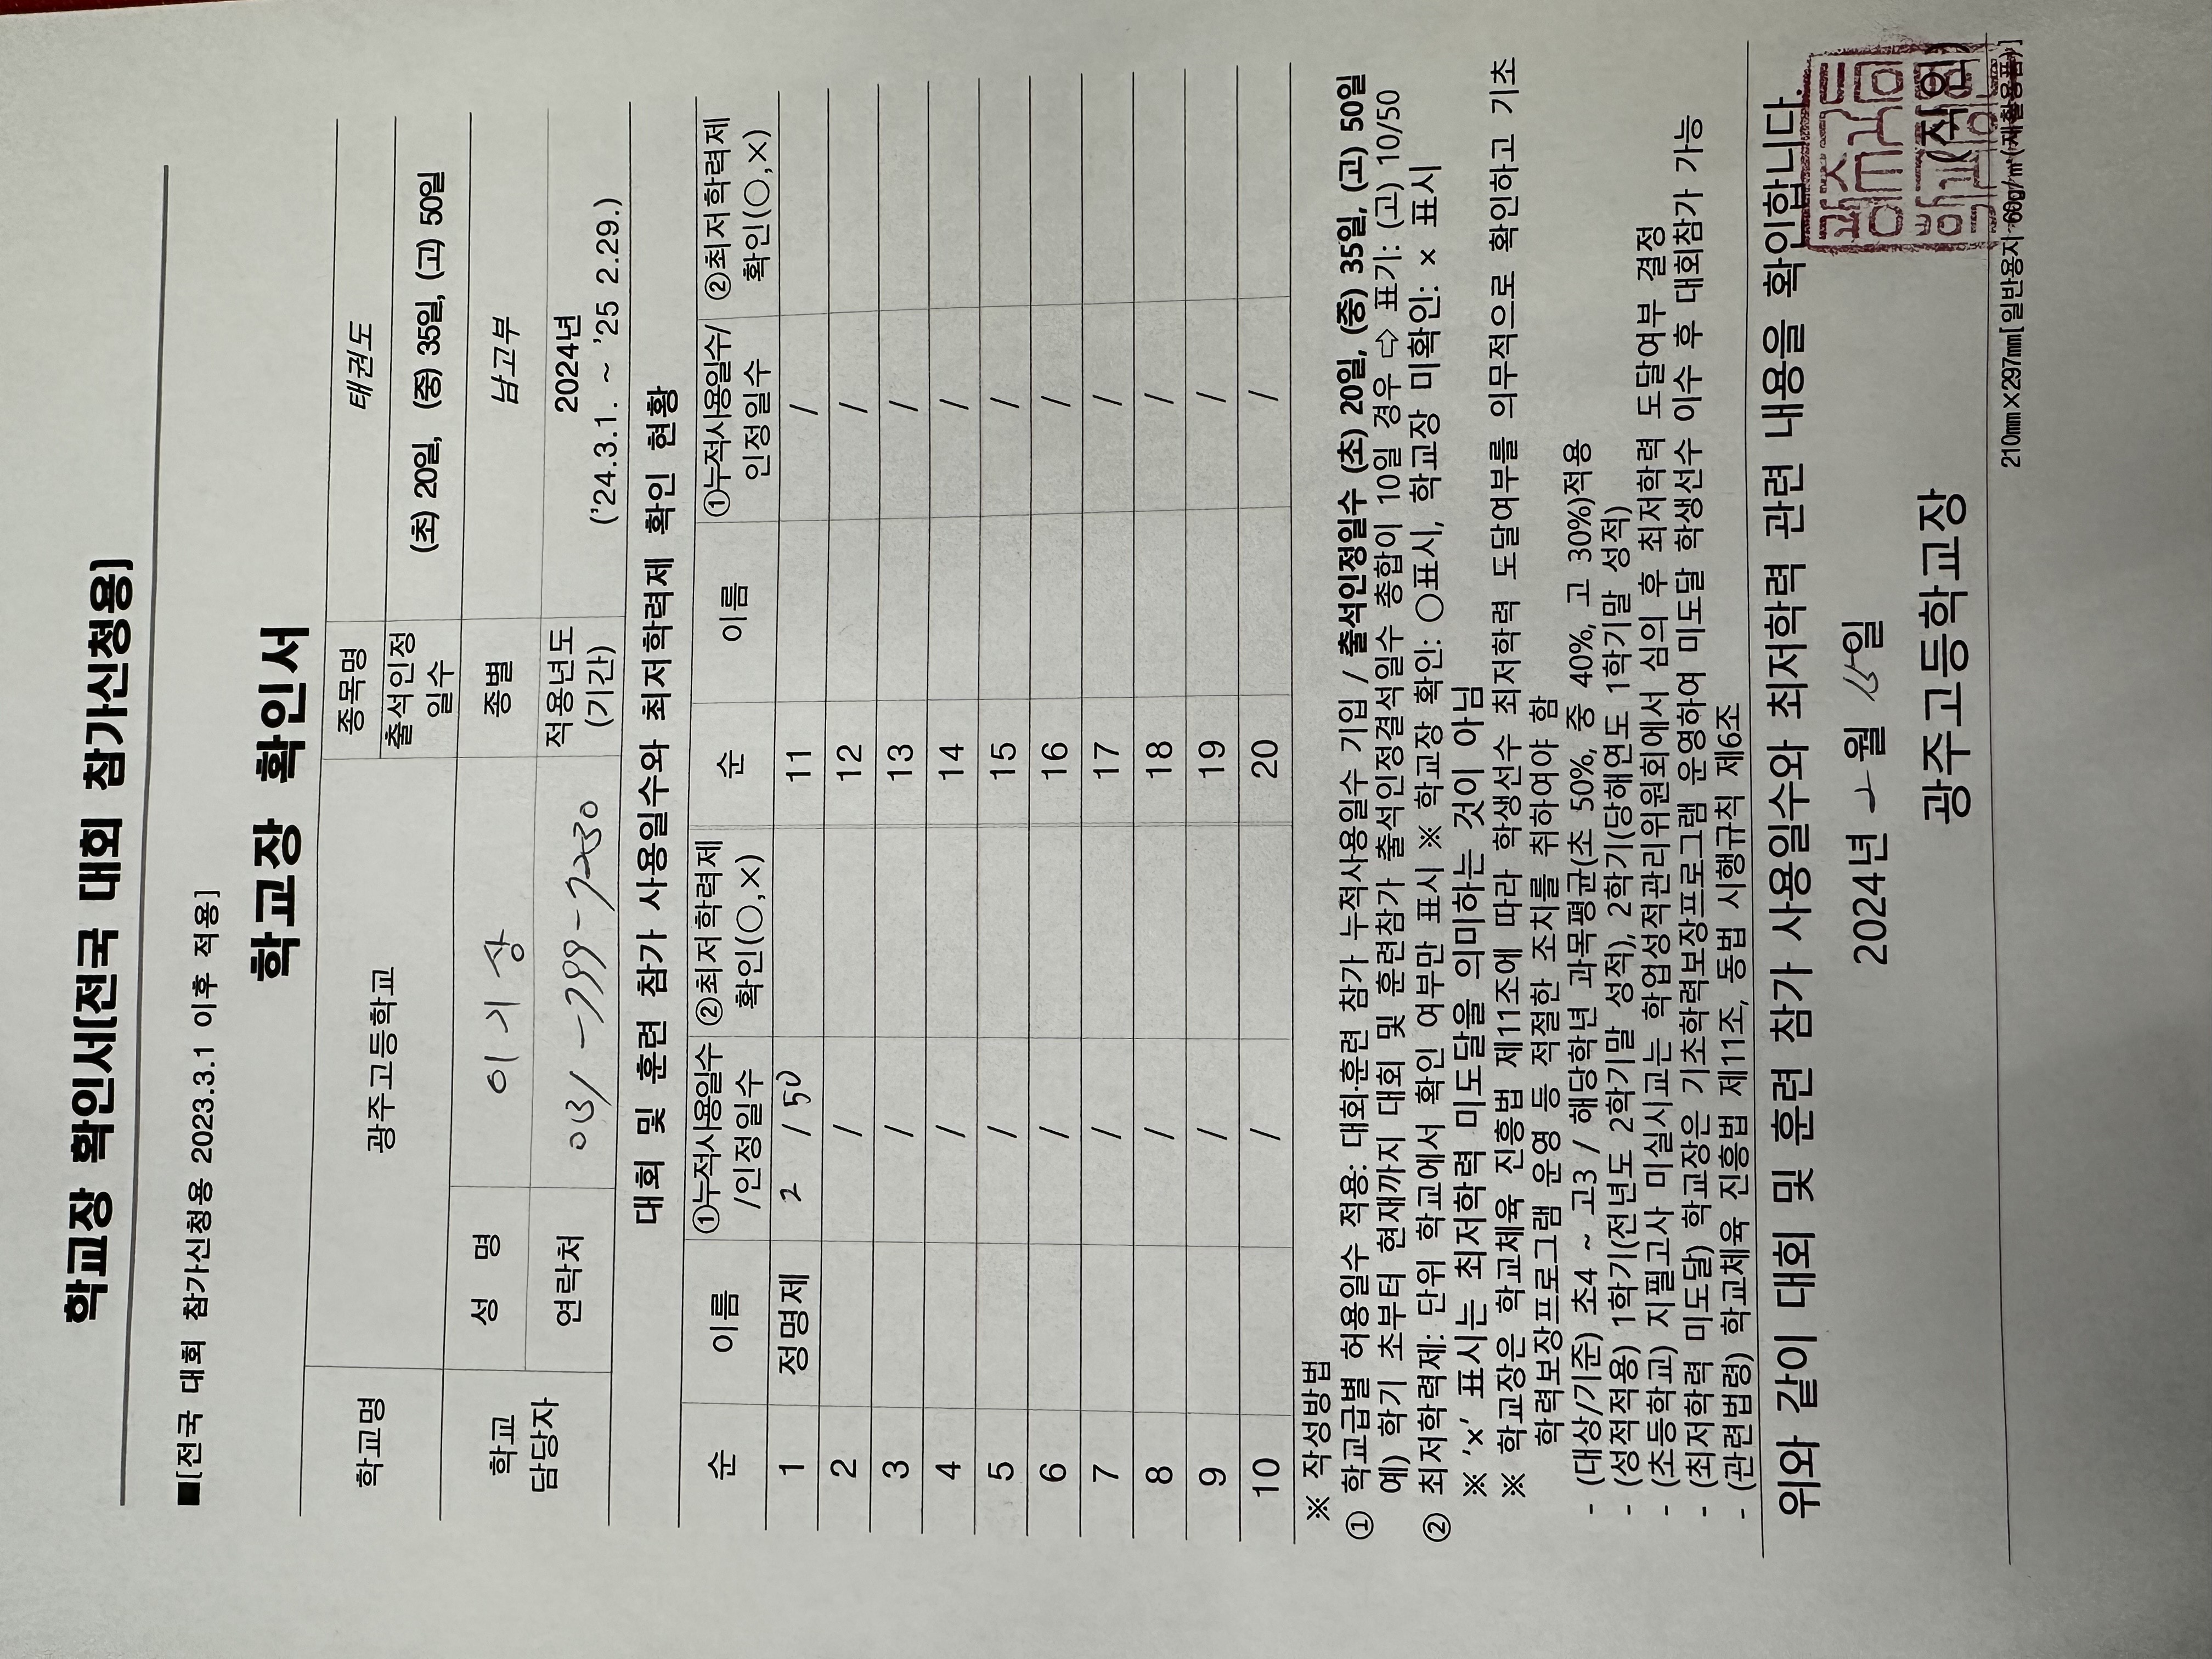 학교장 확인서[전국 대회 참가신청용]
■[전국 대회 참가신청용 2023.3.1 이후 적용]
학교장 확인서
학교명 광주고등학교 종목명 태권도
출석인정일수 (초) 20일, (중) 35일, (고) 50일
학교 담당자 성 명 이기상 종별 남고부
연락처 031-799-7230 적용년도(기간) 2024년 ('24.3.1. ~ '25 2.29.)
대회 및 훈련 참가 사용일수와 최저학력제 확인 현황
순 이름 ①누적사용일수/인정일수 ②최저학력제 확인(○,×) 순 이름 ①누적사용일수/인정일수 ②최저학력제 확인(○,×)
1 정명제 2 / 50 11 /
2 / 12 /
3 / 13 /
4 / 14 /
5 / 15 /
6 / 16 /
7 / 17 /
8 / 18 /
9 / 19 /
10 / 20 /
※ 작성방법
① 학교급별 허용일수 적용: 대회·훈련 참가 누적사용일수 기입 / 출석인정일수 (초) 20일, (중) 35일, (고) 50일
예) 학기 초부터 현재까지 대회 및 훈련참가 출석인정결석일수 총합이 10일 경우 ⇨ 표기: (고) 10/50
② 최저학력제: 단위 학교에서 확인 여부만 표시 ※ 학교장 확인: ○표시, 학교장 미확인: × 표시
※ 'x' 표시는 최저학력 미도달을 의미하는 것이 아님
※ 학교장은 학교체육 진흥법 제11조에 따라 학생선수 최저학력 도달여부를 의무적으로 확인하고 기초
학력보장프로그램 운영 등 적절한 조치를 취하여야 함
- (대상/기준) 초4 ~ 고3 / 해당학년 과목평균(초 50%, 중 40%, 고 30%)적용
- (성적적용) 1학기(전년도 2학기말 성적), 2학기(당해연도 1학기말 성적)
- (초등학교) 지필고사 미실시교는 학업성적관리위원회에서 심의 후 최저학력 도달여부 결정
- (최저학력 미도달) 학교장은 기초학력보장프로그램 운영하여 미도달 학생선수 이수 후 대회참가 가능
- (관련법령) 학교체육 진흥법 제11조, 동법 시행규칙 제6조
위와 같이 대회 및 훈련 참가 사용일수와 최저학력 관련 내용을 확인합니다.
2024년 2월 15일
광주고등학교장 (직인)
210㎜×297㎜[일반용지 60g/㎡(재활용품)]